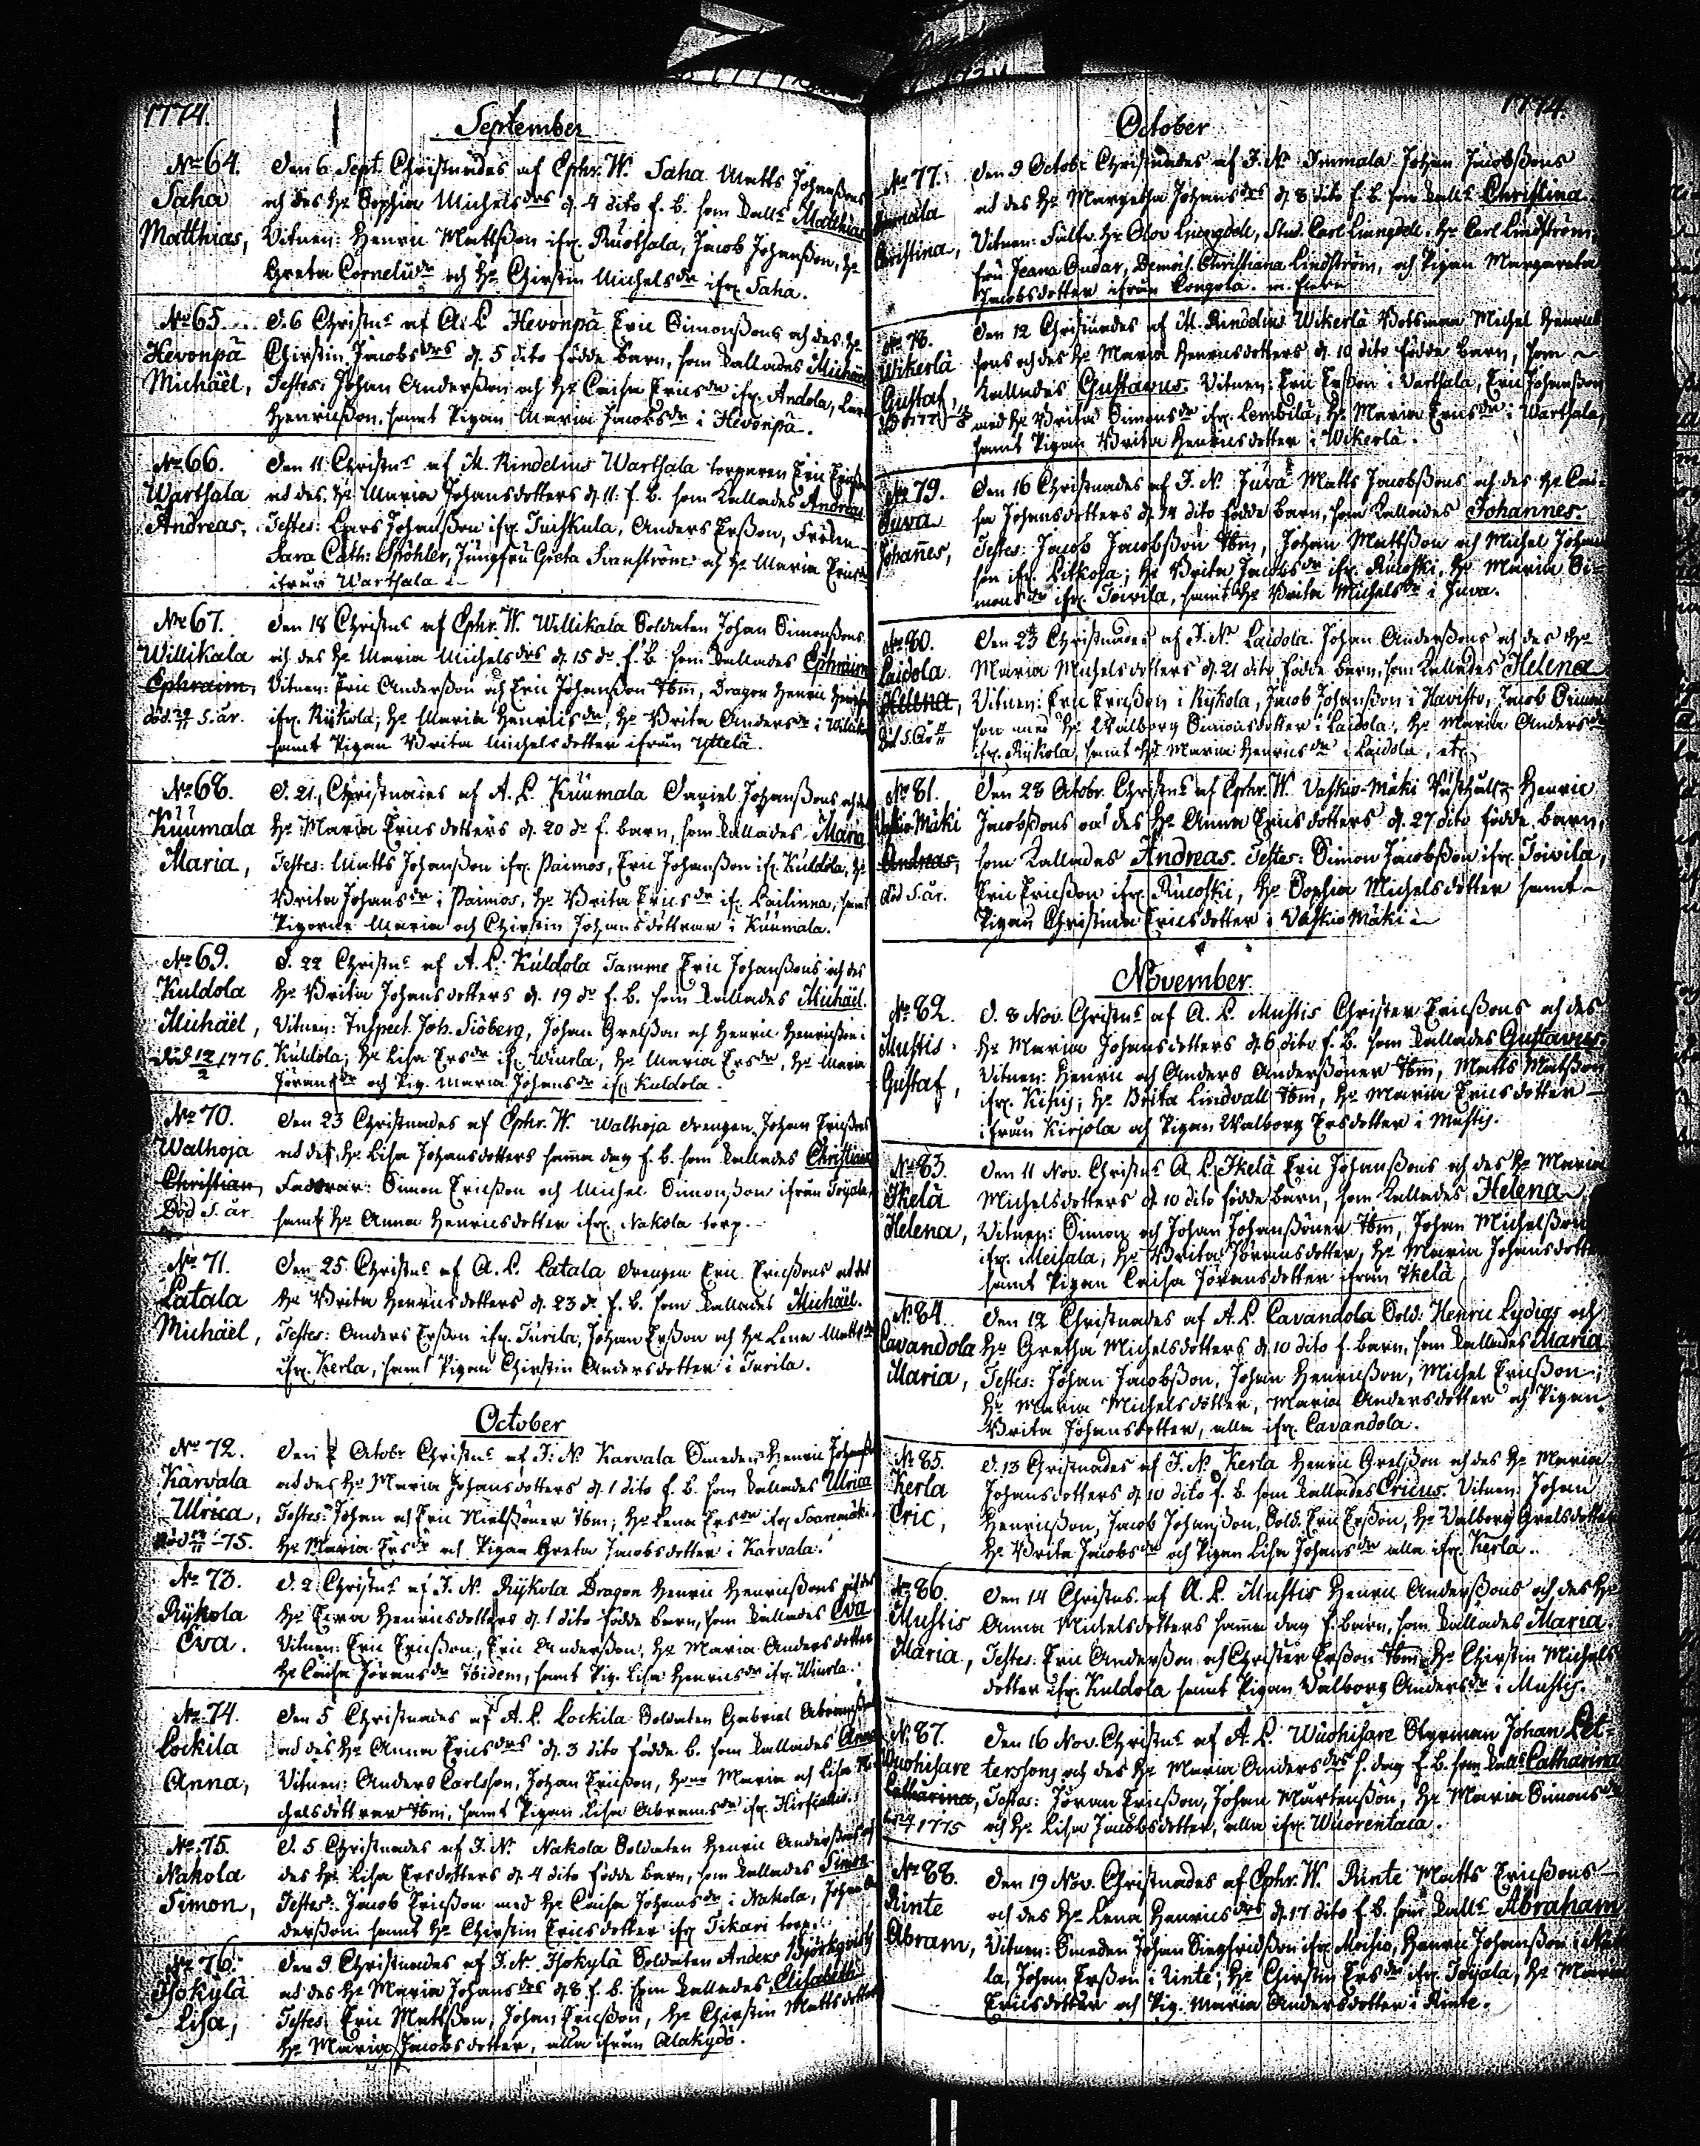 1774.
September
No 64.
Saha
Matthias,
Den 6 Sept. Christnades af Ephr. W. Saha Matts Johanßons
och des H. Sophia Michelsdrs d. 4 dito f. b. som kalls Matthias
Vitnen: Henric Mattßon ifr. Ruothala, Jacob Johanßon, H.
Greta Corneliidr och H. Chirstin Michelsdr ifr. Saha.
No 65.
Hevonpä
Michäel,
D. 6 Christns af A. L. Hevonpä Eric Simonßons och des H.
Chirstin Jacobsdrs d. 5 dito födde barn, som kallades Michäel
Testes: Johan Anderßon och H. Caisa Ericsdr ifr. Andola, Lars
Henricßon, samt Pigan Maria Jacobsdr i Hevonpä.
No 66.
Warthala
Andreas,
Den 11 Christns af M. Rindelius Warthala torparen Eric Ericßons
och des H. Maria Johansdotters d. 11. f. b. som kallades Andreas
Testes: Lars Johanßon ifr. Tuiskula, Anders Erßon, Fröken
Sara Cath: Spöhler, Jungfru Greta Svanström och H. Maria Ericsdr
ifrån Warthala
No 67.
Willikala
Ephraim,
död 5. år.
Den 18 Christns af Ephr. W. Willikala Soldaten Johan Simonßons
och des H. Maria Michelsdrs d. 15 do f. b. som kallades Ephraim
Vitnen: Eric Anderßon och Eric Johanßon Ibm, Dragon Henric Henricßon
ifr. Rykola, H. Maria Henricsdr, H. Brita Andersdr i Willikala
samt Pigan Brita Michelsdotter ifrån Yttelä.
No 68.
Kuumala
Maria,
D. 21, Christnades af A. L. Kuumala Daniel Johanßons och des
H. Maria Ericsdotters d. 20 do f. barn, som kallades Maria
Testes: Matts Johanßon ifr. Paimos, Eric Johanßon ifr. Kuldola, H.
Brita Johansdr i Paimos, H. Brita Ericsdr if. Lailinna, samt
Pigorne Maria och Chirstin Johansdöttrar i Kuumala.
No 69.
Kuldola
Michäel,
död 12/2 1776.
D. 22 Christns af A. L. Kuldola Tamme Eric Johanßons och des
H. Brita Johansdotters d. 19 do f. b. som kallades Michäel.
Vitnen: Inspect. Joh. Siöberg, Johan Grelßon och Henric Henricßon i
Kuldola; H. Lisa Ersdr ifr. Wiurla, H. Maria Ersdr, H. Maria
Jöransdr och Pig. Maria Johansdr ifr. Kuldola.
No 70.
Walhoja
Christian,
Död 5. år.
Den 23 Christnades af Ephr. W. Walhoja drengen Johan Ericßons
och des H. Lisa Johansdotters samma dag f. b. som kallades Christian
Faddrar: Simon Ericßon och Michel Simonßon ifrån Toijala,
samt H. Anna Henricsdotter ifr. Nakola torp.
No 71.
Latala
Michäel,
Den 25 Christns af A. L. Latala drengen Eric Ericßons och des
H. Brita Henricsdotters d. 23 do f. b. som kallades Michäel.
Testes: Anders Erßon ifr. Turila, Johan Erßon och H. Lena Mattsdr
ifr. Kerla, samt Pigan Chirstin Andersdotter i Turila.
October
No 72.
Karvala
Ulrica,
död -75.
Den 2 Octobr Christns af J. N. Karvala Smeden Henric Johanßons
och des H. Maria Johansdotters d. 1 dito f. b. som kallades Ulrica
Testes: Johan och Eric Nielßöner Ibm; H. Lena Ersdr ifr. Saarimäki
H. Maria Ersdr och Pigan Greta Jacobsdotter i Karvala.
No 73.
Rykola
Eva.
D. 2 Christns af J. N. Rykola Dragon Henric Henricßons och des
H. Eva Henricsdotters d. 1 dito födde barn, som kallades Eva
Vitnen: Eric Ericßon, Eric Anderßon, H. Maria Andersdotter
H. Caisa Jöransdr Ibidem, samt Pig. Lisa Henricsdr ifr. Wiurla.
No 74.
Lockila
Anna,
Den 5 Christnades af A. L. Lockila Soldaten Gabriel Abramßons
och des H. Anna Ericsdrs d. 3 dito födde b. som kallades Anna
Vitnen: Anders Carlsson, Johan Ericßon, H. Maria och Lisa Mi-
chelsdöttrar Ibm, samt Pigan Lisa Abramsdr ifr.
No 75.
Nakola
Simon,
D. 5 Christnades af J. N. Nakola Soldaten Henric Anderßons och
des H. Lisa Ersdotters d. 4 dito födde barn, som kallades Simon
Testes: Jacob Ericßon med H. Caisa Johansdr i Nakola, Johan An-
derßon samt H. Chirstin Ericsdotter ifr. Tikari torp.
No 76.
Isokylä
Lisa,
Den 9 Christnades af J. N. Isokylä Soldaten Anders Björkqvists
och des H. Maria Johansdrs d. 8 f. b. som kallades Elisabeth
Testes: Eric Mattßon, Johan Ericßon, H. Chirstin Mattsdotter
H. Maria Jacobsdotter, alla ifrån Alakydö.
1774.
October
No 77.
Immala
Christina,
Den 9 Octobr Christnades af J. N. Immala Johan Jacobßons
och des H. Margetha Johansdrs d. 8 dito f. b. som kalls Christina.
Vitnen: Fältv. Hr Olov Liungdell, Stud. Carl Liungdell, Hr Carl Lindström,
fru Jeana Oudar, Demois. Christiana Lindström, och Pigan Margareta
Jacobsdotter ifrån Congola.
No 78.
Wikerlä
Gustaf,
Den 12 Christnades af M. Rindelius Wikerlä Botsman Michel Henric-
sons och des H. Maria Henricsdotters d. 10 dito födde barn, som
kallades Gustavus. Vitnen: Eric Erßon i Warthala, Eric Johanßon
med H. Brita Simonsdr ifr. Lembilä, H. Maria Ericsdr i Warthala,
samt Pigan Brita Henricsdotter i Wikerlä.
No 79.
Juva
Johannes,
Den 16 Christnades af J. N. Juva Matts Jacobßons och des H. Cai-
sa Johansdotters d. 14 dito födde barn, som kallades Johannes.
Testes: Jacob Jacobßon Ibm, Johan Mattßon och Michel Johan-
son ifr. Pitkosa; H. Brita Jacobsdr ifr. Rucoski, H. Maria Si-
monsdr ifr. Toivila, samt H. Brita Michelsdr i Juva.
No 80.
Laidola
Helena,
Död 5. år
Den 23 Christnades af J. N. Laidola Johan Anderßons och des H.
Maria Michelsdotters d. 21 dito födde barn, som kallades Helena
Vitnen: Eric Ericßon i Rykola, Jacob Johanßon i Havisto, Jacob Simon-
son med H. Walborg Simonsdotter i Laidola, H. Maria Andersdr
ifr. Rykola, samt H. Maria Henricsdr i Laidola, etc.
No 81.
Vaskio-Mäki
Andreas,
död 5. år.
Den 28 Octobr. Christns af Ephr. W. Vaskio-Mäki Henric
Jacobßons och des H. Anna Ericsdotters d. 27 dito födde barn,
som kallades Andreas. Testes: Simon Jacobßon ifr. Toivila,
Eric Ericßon ifr. Rucoski, H. Sophia Michelsdotter samt
Pigan Christina Ericsdotter i Vaskio Mäki
November
No 82.
Mustis
Gustaf,
D. 8 Nov. Christns af A. L. Mustis Christer Ericßons och des
H. Maria Johansdotters d. 6 dito f. b. som kallades Gustavus.
Vitnen: Henric och Anders Anderßöner Ibm, Matts Mattßon
ifr. Kisis; H. Brita Lindvall Ibm, H. Maria Ericsdotter
ifrån Kirjola och Pigan Walborg Ersdotter i Mustis.
No 83.
Ikelä
Helena,
Den 11 Nov. Christns A. L. Ikelä Eric Johanßons och des H. Maria
Michelsdotters d. 10 dito födde barn, som kallades Helena
Vitnen: Simon och Johan Johanßöner Ibm, Johan Michelßon
ifr. Meisala, H. Brita Jöransdotter, H. Maria Johansdotter
samt Pigan Caisa Jöransdotter ifrån Ikelä
No 84.
Cavandola
Maria,
Den 12 Christnades af A. L. Cavandola Sold: Henric Lydigs och
H. Gretha Michelsdotters d. 10 dito f. barn, som kallades Maria
Testes: Johan Jacobßon, Johan Henricßon, Michel Ericßon,
H. Maria Michelsdotter, Maria Andersdotter och Pigan
Brita Johansdotter, alla ifr. Cavandola.
No 85.
Kerla
Eric,
D. 13 Christnades af J. N. Kerla Henric Grelßon och des H. Maria
Johansdotters d. 10 dito f. b. som kallades Ericus. Vitnen: Johan
Henricßon, Jacob Johanßon, Sold. Eric Erßon, H. Valborg Grelsdotter
H. Brita Jacobsdr och Pigan Lisa Johansdr alla ifr. Kerla.
No 86.
Mustis
Maria,
Den 14 Christns. af A. L. Mustis Henric Anderßons och des H.
Anna Michelsdotters samma dag f. barn, som kallades Maria.
Testes: Eric Anderßon och Christer Erßon Ibm, H. Chirstin Michels-
dotter ifr. Kuldola samt Pigan Valborg Andersdr i Mustis.
No 87.
Wuohisare
Catharina,
1775
Den 16 Nov. Christns af A. L. Wuohisare Styrman Johan Pet-
terssons och des H. Maria Andersdrs s. dag f. b. som kalls Catharina
Testes: Jöran Ericßon, Johan Mårtenßon, H. Maria Simonsdr
och H. Lisa Jacobsdotter, alla ifr. Wuorentaca.
No 88.
Rinte
Abram,
Den 19 Nov. Christnades af Ephr. W. Rinte Matts Ericßons
och des H. Lena Henricsdrs d. 17 dito f. b. som kalls Abraham
Vitnen: Smeden Johan Siegfridßon ifr. Moisio, Henric Johanßon i
la, Johan Erßon i Rinte, H. Chirstin Ersdr ifr. Toijala, H. Maria
Ericsdotter och Pig. Maria Andersdotter i Rinte.